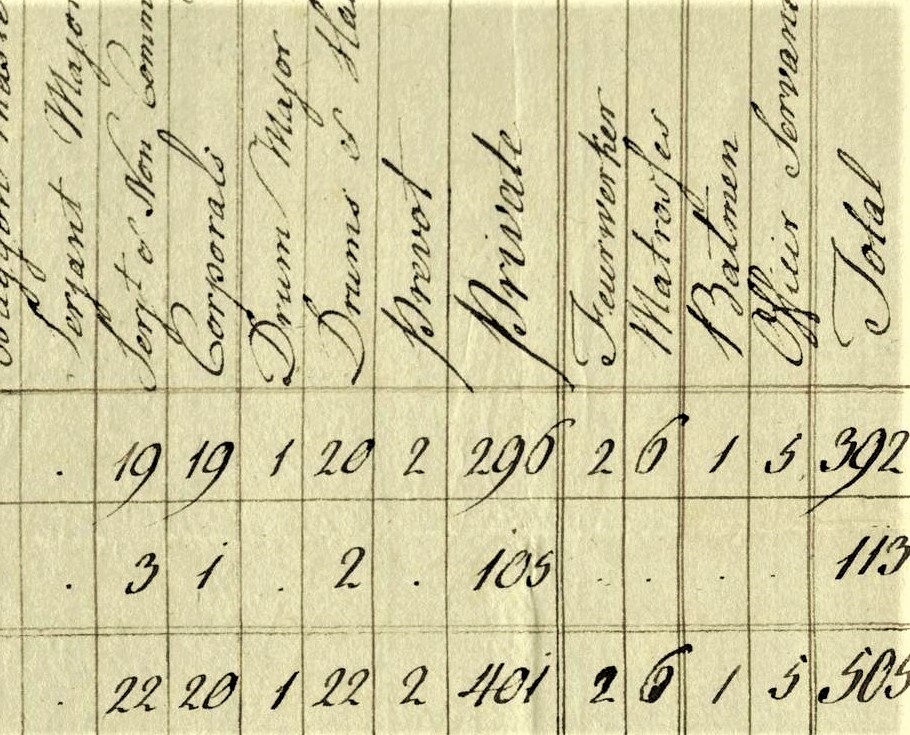 Serjant Major
Serjt & Non Comm
Corporals
Drum Major
Drums &
Prevot
Private
Feurwerker
Matrosses
Batmen
Officier Servan
Total
. 19 19 1 20 2 296 2 6 1 5 392
. 3 1 . 2 . 105 . . . . 113
. 22 20 1 22 2 401 2 6 1 5 505